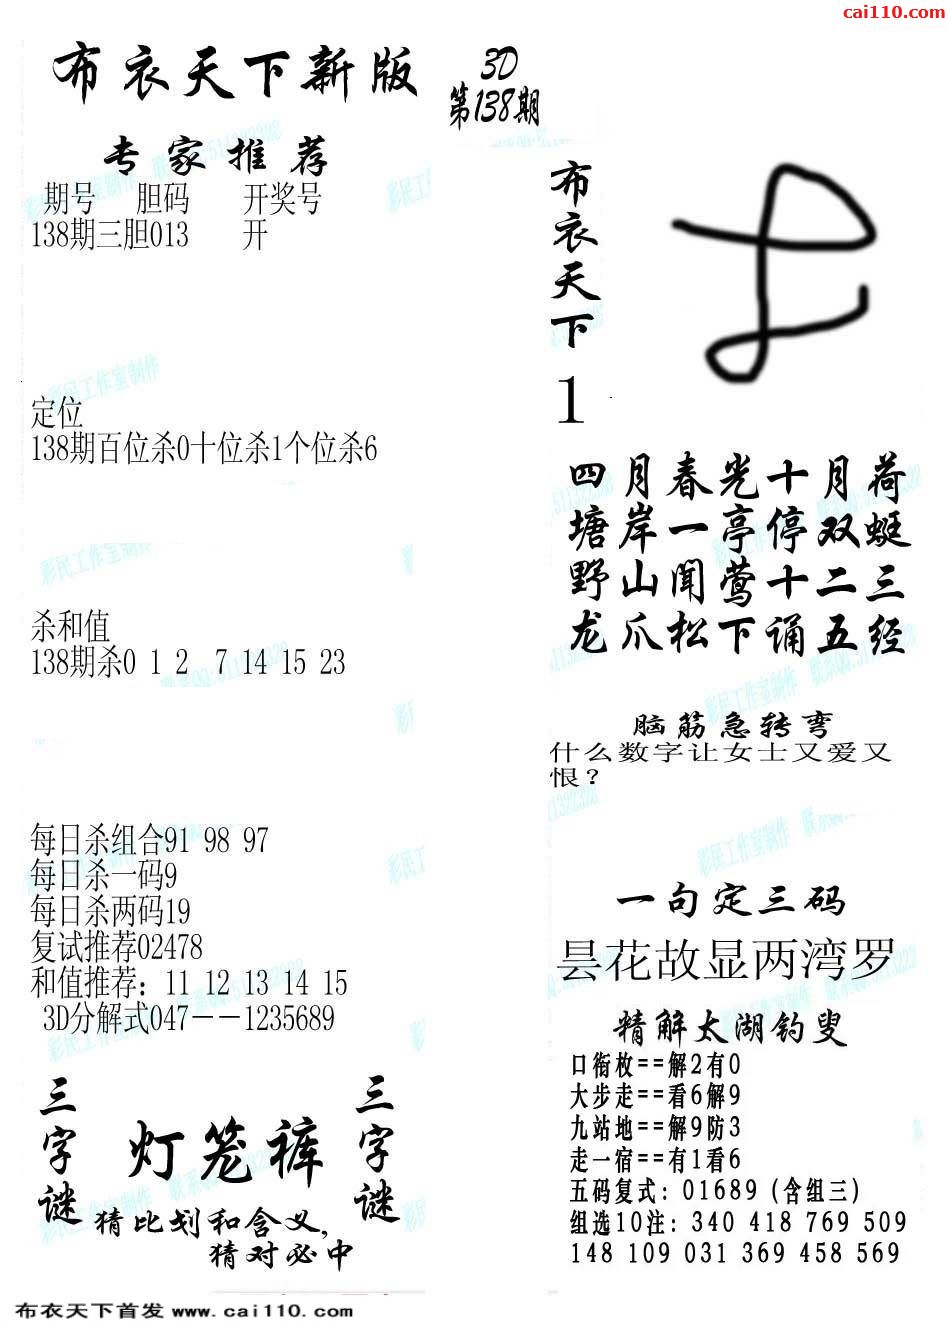 cai110.com
布衣天下新版
3D
第138期
专家推荐
期号 胆码 开奖号
138期三胆013 开
定位
138期百位杀0十位杀1个位杀6
杀和值
138期杀0 1 2 7 14 15 23
每日杀组合91 98 97
每日杀一码9
每日杀两码19
复试推荐02478
和值推荐：11 12 13 14 15
3D分解式047－－1235689
三字谜
灯笼裤
三字谜
猜比划和含义，
猜对必中
布衣天下
1
四月春光十月荷
塘岸一亭停双蜓
野山闻莺十二三
龙爪松下诵五经
脑筋急转弯
什么数字让女士又爱又
恨？
一句定三码
昙花故显两湾罗
精解太湖钓叟
口衔枚==解2有0
大步走==看6解9
九站地==解9防3
走一宿==有1看6
五码复式：01689（含组三）
组选10注：340 418 769 509
148 109 031 369 458 569
布衣天下首发 www.cai110.com